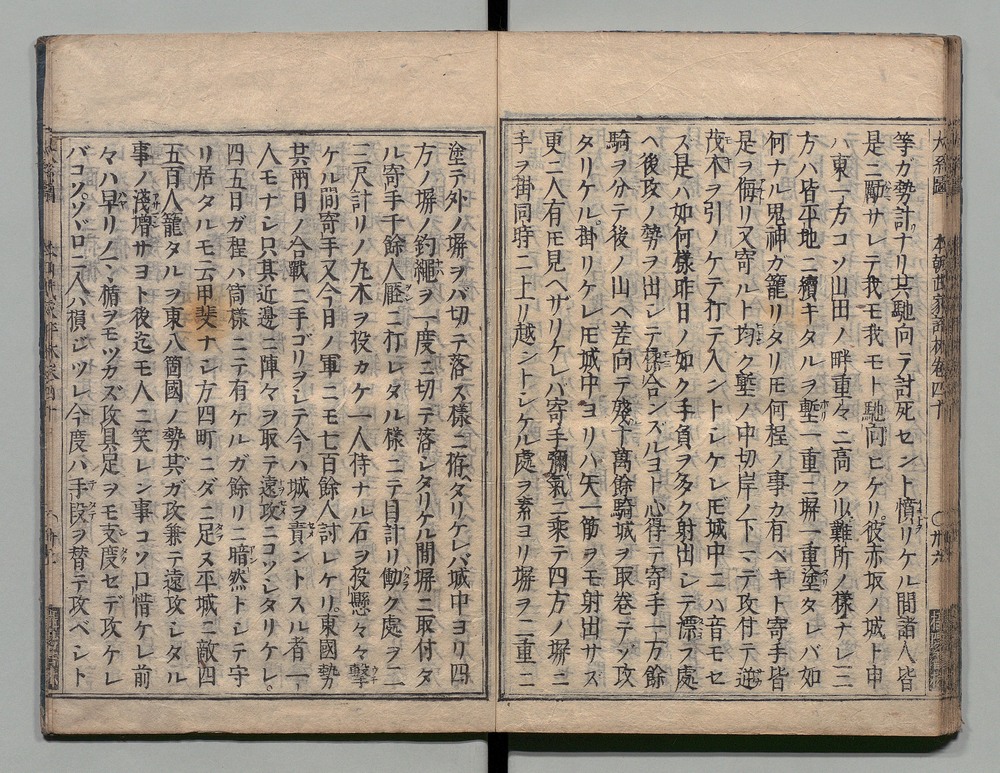 等ガ勢計ナリ其馳向テ討死セント憤リケル間諸人皆
是ニ勵サレテ我モ我モト馳向ヒケリ彼赤坂ノ城ト申
ハ東一方コソ山田ノ畔重々ニ高ク乄難所ノ様ナレ三
方ハ皆平地ニ續キタルヲ塹一重ニ塀一重塗タレバ如
何ナル鬼神ガ籠リタリ𪜈何程ノ事カ有ベキト寄手皆
是ヲ侮リ又寄ルト均ク塹ノ中切岸ノ下マデ攻付テ逆
茂木ヲ引ノケテ打テ入ントシケレ𪜈城中ニハ音モセ
ズ是ハ如何様昨日ノ如ク手負ヲ多ク射出シテ漂フ處
ヘ後攻ノ勢ヲ出シテ揉合ンスルヨト心得テ寄手一方餘
騎ヲ分テ後ノ山ヘ差向テ殘下萬餘騎城ヲ取卷テゾ攻
タリケル掛リケレ𪜈城中ヨリハ矢一筋ヲモ射出サズ
更ニ人有𪜈見ヘザリケレバ寄手彌氣ニ乘テ四方ノ塀ニ
手ヲ掛同時ニ上リ越シトシケル處ヲ素ヨリ塀ヲ二重ニ
塗テ外ノ塀ヲバ切テ落ス様ニ拵タリケレバ城中ヨリ四
方ノ塀ノ釣繩ヲ一度ニ切テ落シタリケル間塀ニ取付タ
ル寄手千餘人壓ニ打レタル様ニテ目計リ働ク處ヲ二
三尺計リノ九木ヲ役カケ一人侍ナル石ヲ投懸々々擊
ケル間寄手又今日ノ軍ニモ七百餘人討レケリ東國勢
其兩日ノ合戰ニ手ゴリヲシテ今ハ城ヲ責ントスル者一
人モナシ只其近邊ニ陣々ヲ取テ遠攻ニコソシタリケレ
四五日ガ程ハ箇様ニテ有ケルガ餘リニ暗然トシテ守
リ居タルモ云甲斐ナシ方四町ニダニ足ヌ平城ニ敵四
五百人籠タルヲ東八箇國ノ勢共ガ攻兼テ遠攻シタル
事ノ淺増サヨト後迄モ人ニ笑レン事コソ口惜ケレ前
々ハ早リノ儘楯ヲモツカズ攻具足ヲモ支度セデ攻ケレ
バコソゾヾロニ人ハ損ジツレ今度ハ手段ヲ替テ攻ベシト